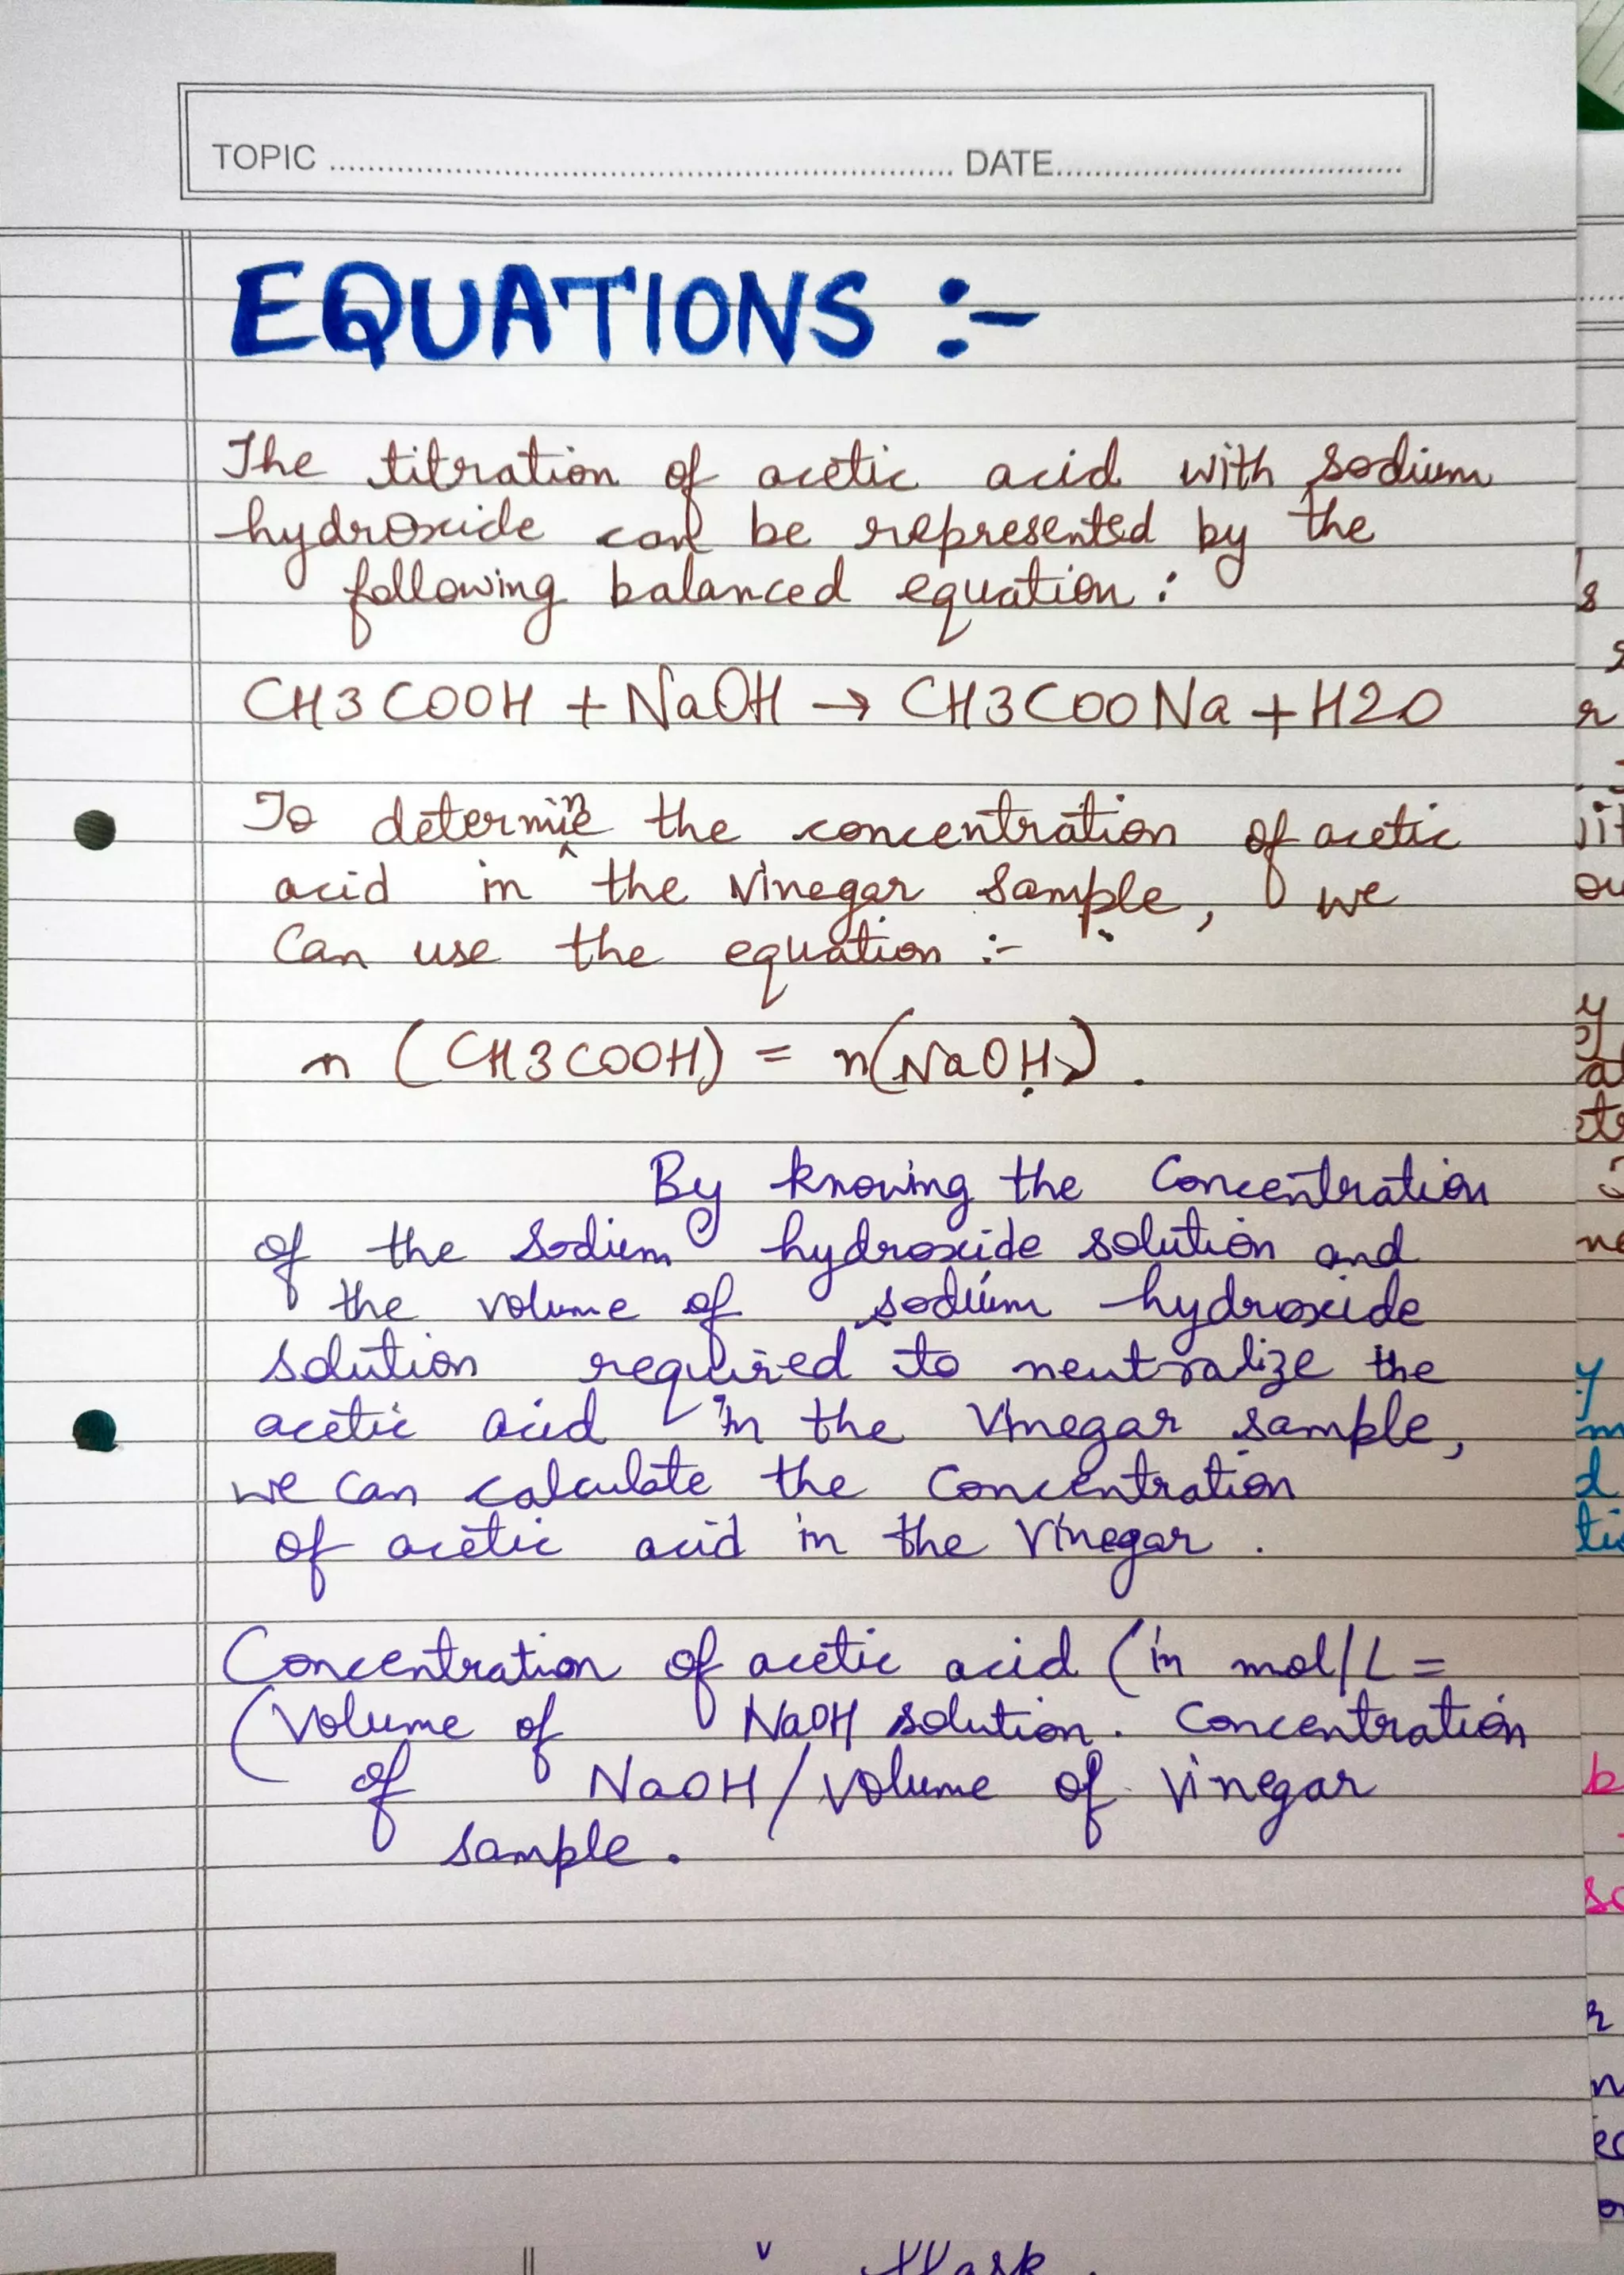 TOPIC ........ DATE........
EQUATIONS :-
The titration of acetic acid with sodium
hydroxide can be represented by the
following balanced equation :
CH3COOH + NaOH → CH3COONa + H2O
To determine the concentration of acetic
acid in the vinegar sample, we
can use the equation :-
n (CH3COOH) = n(NaOH) .
By knowing the Concentration
of the Sodium hydroxide solution and
the volume of sodium hydroxide
solution required to neutralize the
acetic acid in the Vinegar sample,
we can calculate the Concentration
of acetic acid in the Vinegar .
Concentration of acetic acid (in mol/L =
(Volume of NaOH solution. Concentration
of NaOH/volume of Vinegar
sample.